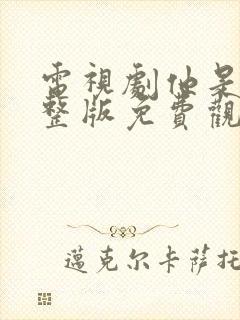 電視劇仙杲
整版免費觀
邁克尔卡萨托